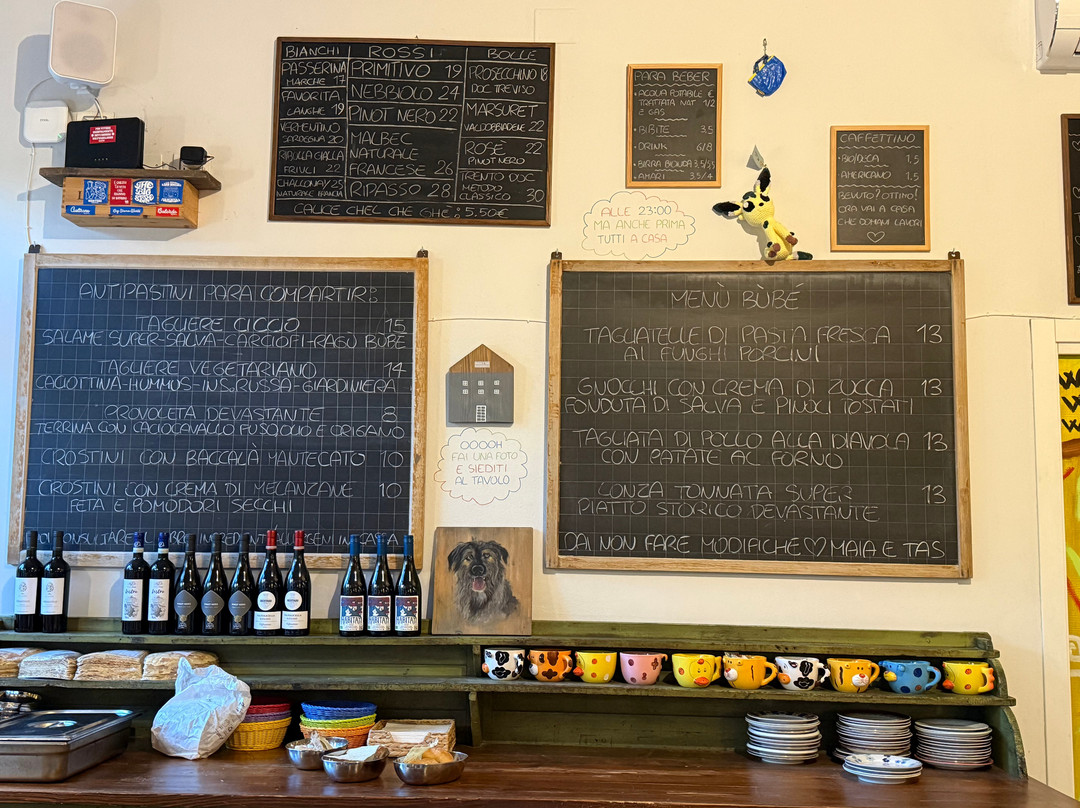 BIANCHI
PASSERINA
MARCHE 17
FAVORITA
LANGHE 19
VERMENTINO
SARDEGNA 20
RIBOLLA GIALLA
FRIULI 22
CHALLONAY 25
NATURALE FRANCIA
ROSSI
PRIMITIVO 19
NEBBIOLO 24
PINOT NERO 22
MALBEC
NATURALE
FRANCESE 26
RIPASSO 28
BOLLE
PROSECCHINO 18
DOC TREVISO
MARSURET
VALDOBBIADENE 22
ROSÈ 22
PINOT NERO
TRENTO DOC
METODO
CLASSICO 30
CALICE CHEL CHE GHÈ: 5.50€
PARA BEBER
• ACQUA POTABILE E
TRATTATA NAT 1/2
E GAS
• BIBITE 3,5
• DRINK 6/8
• BIRRA BIONDA 3,5/4,5
• AMARI 3,5/4
CAFFETTINO
• BIO/DECA 1,5
AMERICANO 1,5
BEVUTO? OTTIMO!
ORA VAI A CASA
CHE DOMANI LAVORI
ALLE 23:00
MA ANCHE PRIMA
TUTTI A CASA
ANTIPASTINI PARA COMPARTIR:
TAGLIERE CICCIO 15
SALAME SUPER-SALVA-CARCIOFI-RAGÙ BÙBE
TAGLIERE VEGETARIANO 14
CACIOTTINA-HUMMUS-INS.RUSSA-GIARDINIERA
PROVOLETA DEVASTANTE 8
TERRINA CON CACIOCAVALLO FUSO,OLIO E ORIGANO
CROSTINI CON BACCALÀ MANTECATO 10
CROSTINI CON CREMA DI MELANZANE 10
FETA E POMODORI SECCHI
OOOOH
FAI UNA FOTO
E SIEDITI
AL TAVOLO
MENÙ BÙBÉ
TAGLIATELLE DI PASTA FRESCA 13
AI FUNGHI PORCINI
GNOCCHI CON CREMA DI ZUCCA 13
FONDUTA DI SALVA E PINOLI TOSTATI
TAGLIATA DI POLLO ALLA DIAVOLA 13
CON PATATE AL FORNO
LONZA TONNATA SUPER 13
PIATTO STORICO DEVASTANTE
DAI NON FARE MODIFICHE ♡ MAIA E TAS